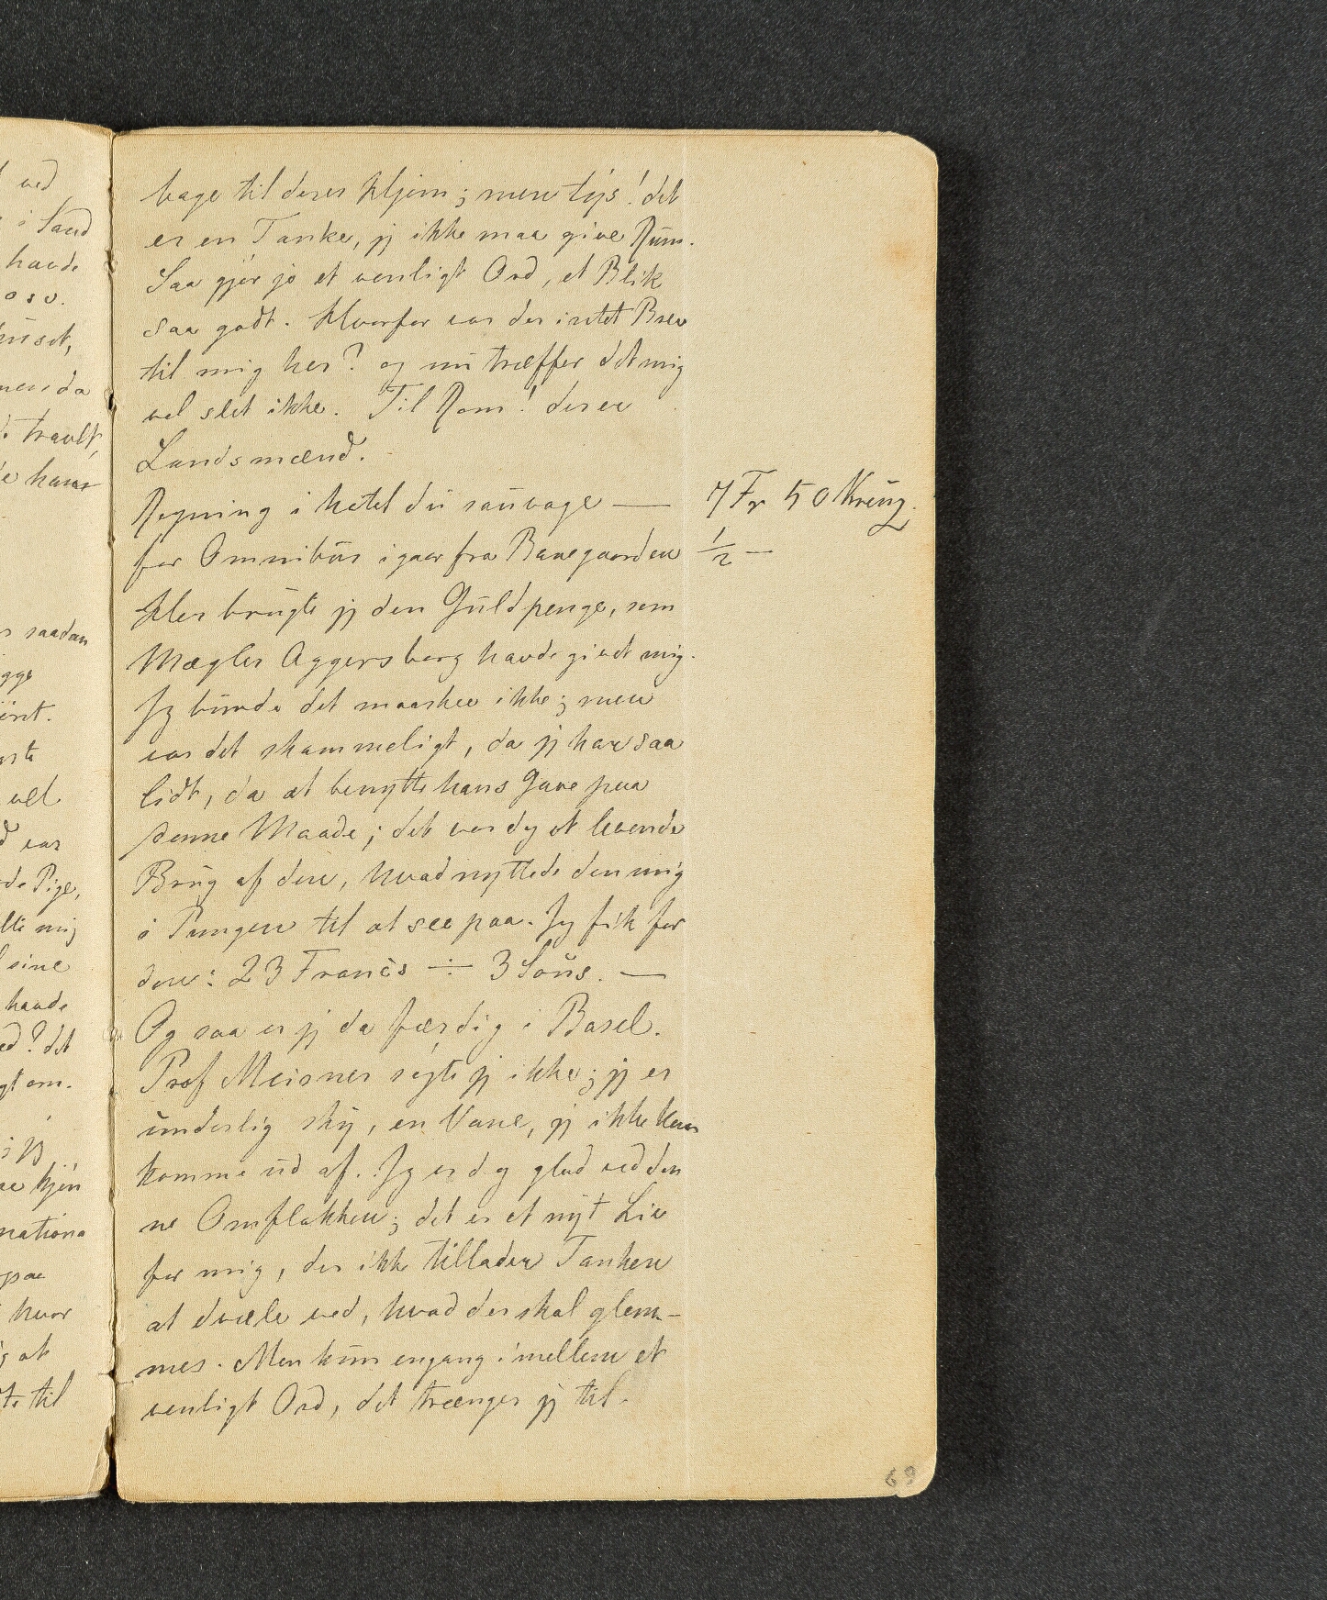 bage til deres Hjem; men tys! det
er en Tanke, jeg ikke maa give Rum.
Saa gjør jo et venligt Ord, et Blik
saa godt. Hvorfor var der intet Brev
til mig her? og nu træffer det mig
vel slet ikke. Til Rom! der er
Landsmænd.
Regning i hotel du sauvage — 7 Fr 50 Kreuz.
for Omnibus igaar fra Banegaarden 1/2 —
Her brugte jeg den Guldpenge, som
Mægler Aggersborg havde givet mig.
Jeg burde det maaskee ikke; men
var det skammeligt, da jeg har saa
lidt, da at benytte hans Gave paa
denne Maade; det var dog et levende
Brug af den, hvad nyttede den mig
i Pungen til at see paa. Jeg fik for
den: 23 Francs ÷ 3 Sous. —
Og saa er jeg da færdig i Basel.
Prof Meisner søgte jeg ikke; jeg er
underlig sky, en Vane, jeg ikke kan
komme ud af. Jeg er dog glad ved den
ne Omflakken; det er et nyt Liv
for mig, der ikke tillader Tanken
at dvæle ved, hvad der skal glem-
mes. Men kun engang imellem et
venligt Ord, det trænger jeg til.
69
ved
i Sand
havde
osv.
huset,
men da
travlt,
hans
saadan
vel
var
Pige,
mig
sine
havde
det
om.
jeg
hvor
at
til